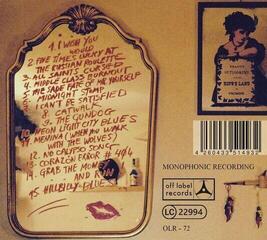 1. I WISH YOU
WOULD
2. FIVE TIMES LUCKY AT
THE RUSSIAN ROULETTE
3. ALL SAINTS CURSED
4. MIDDLE CLASS BURNOUT
5. THE SADE FATE OF ME MYSELF
6. MIDNIGHT STOMP
7. CAN'T BE SATISFIED
8. CATWALK
9. THE GUNDOG
10. NEON LIGHT CITY BLUES
11. MENINA (WHEN YOU WALK
WITH THE WOLVES)
12. NO CALYPSO SONG
13. CORAZÓN ERROR #404
14. GRAB THE MONEY
AND RUN
15. HILLBILLY-BLUES
4 260433 514932
MONOPHONIC RECORDING
off label
records
LC 22994
OLR - 72